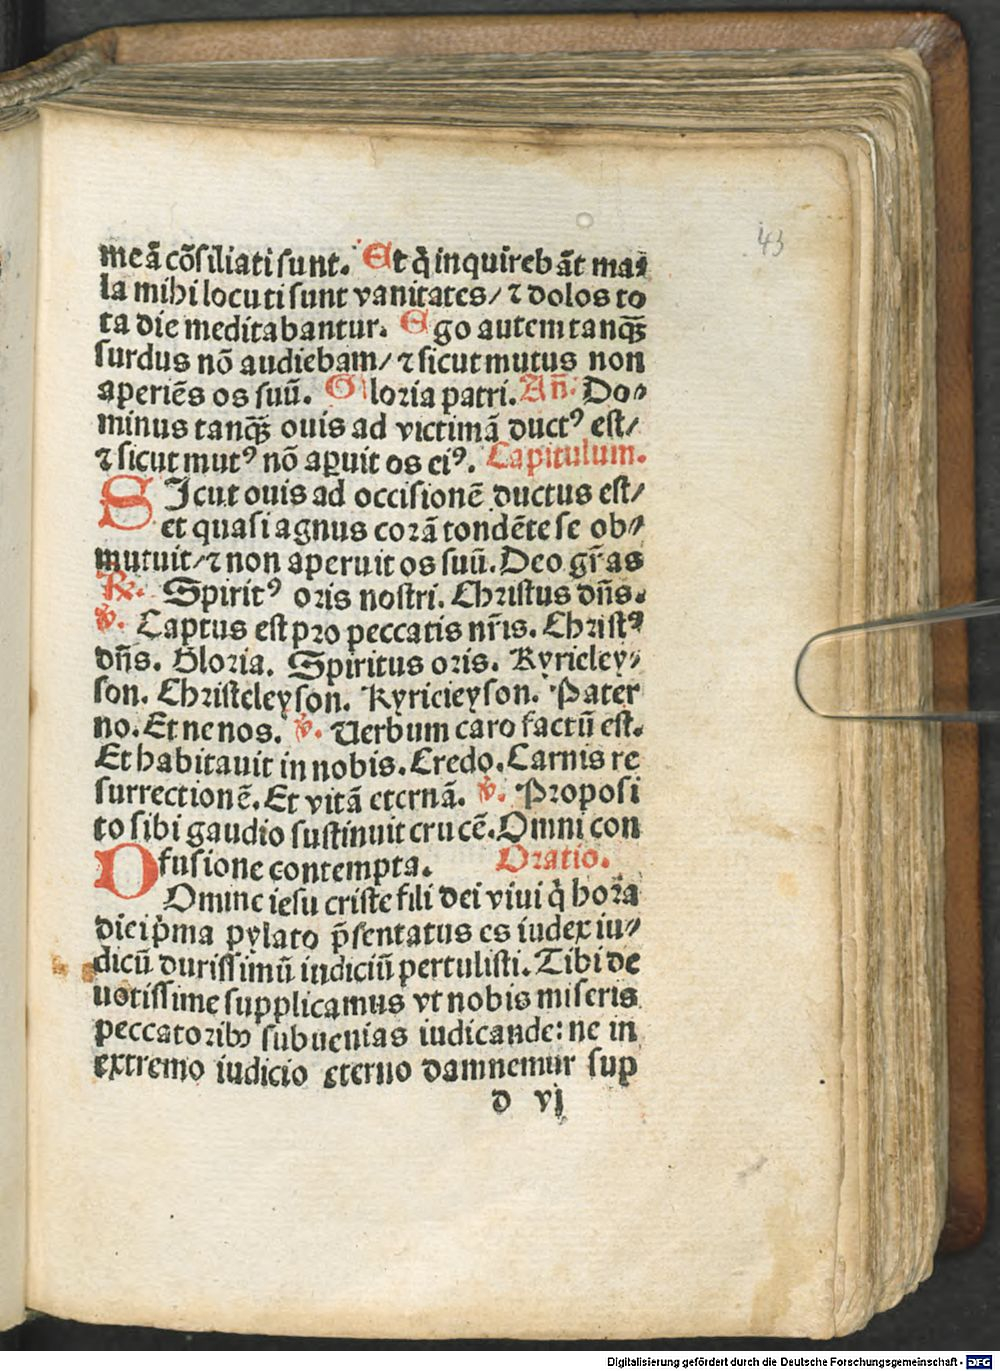 43
meā cōsiliati sunt. Et q̇ inquirebāt ma⸗
la mihi locuti sunt vanitates/ ⁊ dolos to
ta die meditabantur. Ego autem tanqȝ̄
surdus nō audiebam/ ⁊ sicut mutus non
aperiēs os suū. Gloria patri. An̄. Do⸗
minus tanqȝ̄ ouis ad victimā ductꝰ est/
⁊ sicut mutꝰ nō aꝑuit os eiꝰ. Capitulum.
SIcut ouis ad occisionē ductus est/
et quasi agnus corā tondēte se ob⸗
mutuit/ ⁊ non aperuit os suū. Deo gr̄as
℟. Spiritꝰ oris nostri. Christus dn̄s.
℣. Captus est pro peccatis nr̄is. Christꝰ
dn̄s. Gloria. Spiritus oris. Kyrieley⸗
son. Christeleyson. Kyrieieyson. Pater
no. Et ne nos. ℣. Uerbum caro factū est.
Et habitauit in nobis. Credo. Carnis re
surrectionē. Et vitā eternā. ℣. Proposi
to sibi gaudio sustinuit crucē. Omni con
fusione contempta. Oratio.
DOmine iesu criste fili dei viui q̇ hora
diei pͥma pylato p̄sentatus es iudex iu⸗
dicū durissimū iudiciū pertulisti. Tibi de
uotissime supplicamus vt nobis miseris
peccatoribꝫ subuenias iudicande: ne in
extremo iudicio eterno damnemur sup
d vj
Digitalisierung gefördert durch die Deutsche Forschungsgemeinschaft - DFG